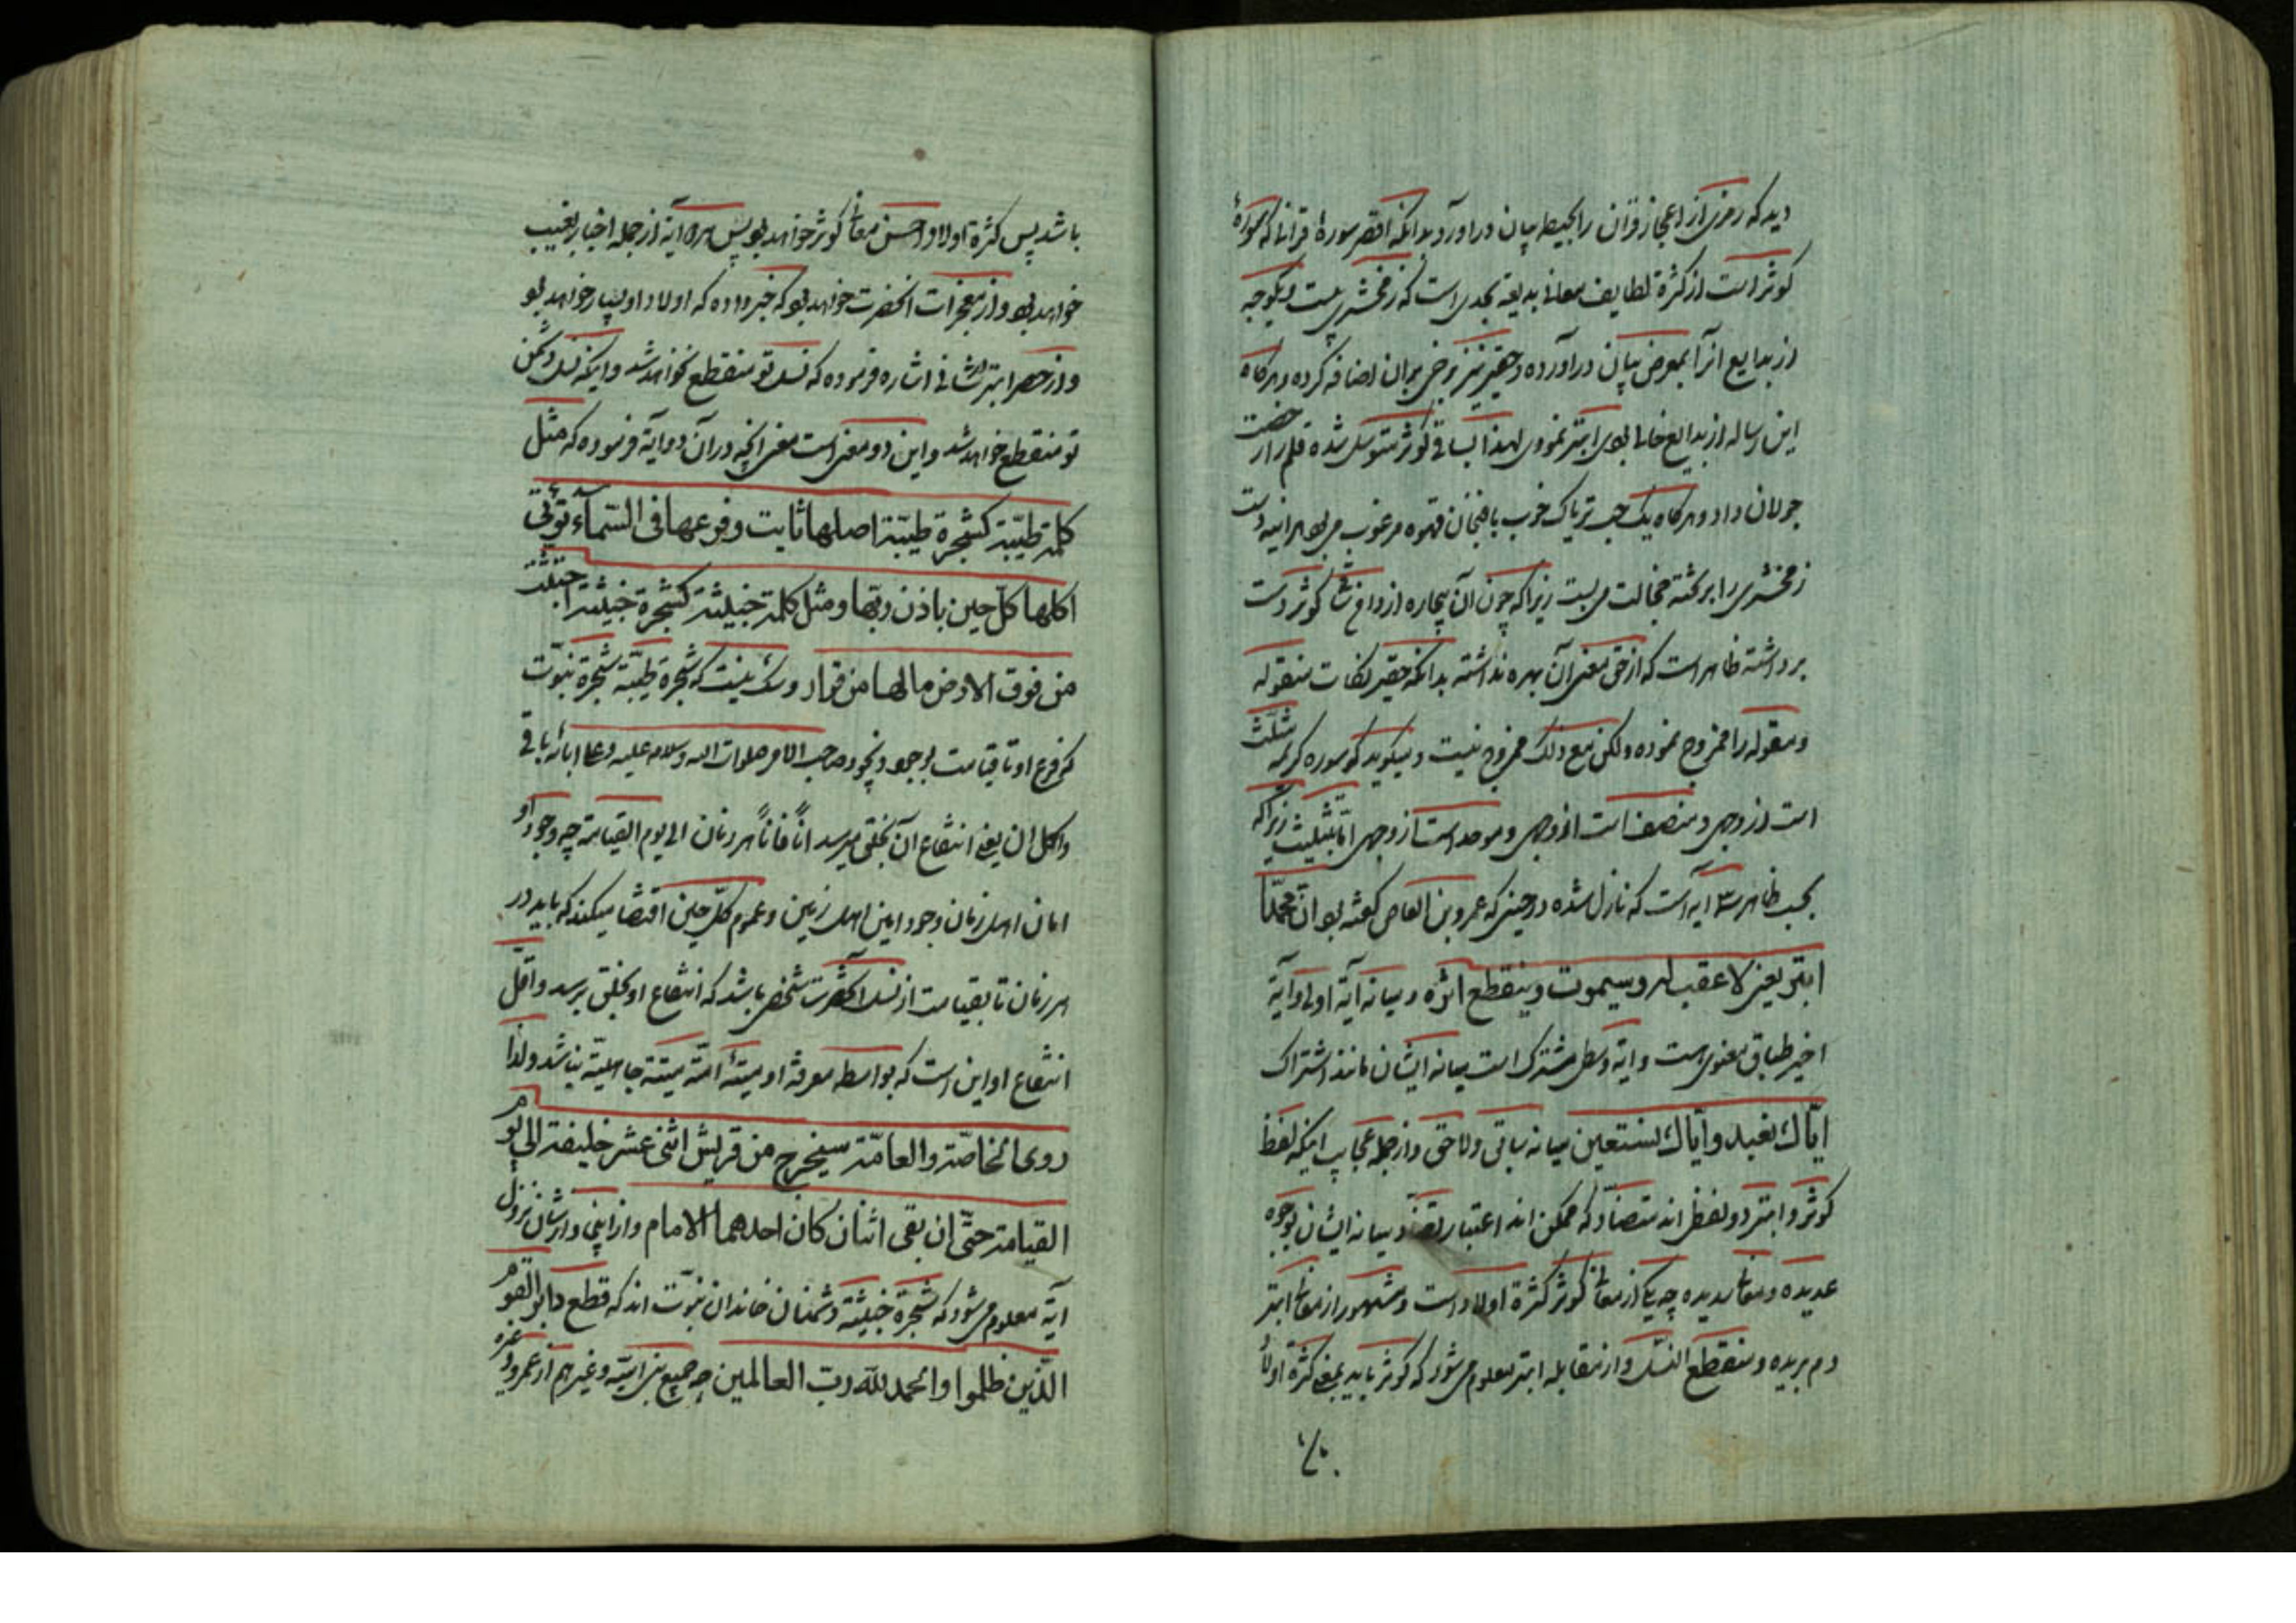 دید که رمزی از اعجاز قرآن را بحیطه بیان در اورد بدانکه اقصر سورهٔ قرآنی که سورهٔ
کوثر است از کثرة لطایف معانی بدیعه بحدی است که زمخشری بیست ویکوجه
از بدایع انرا بمعرض بیان در آورده و حقیر نیز برخی بران اضافه کرده و هرکاه
این رساله از بدایع خالی بودی ابتر نمودی لهذا بساقی کوثر متوسل شده قلم را رخصت
جولان داد و هرکاه یک حب تریاک خوب با فنجان قهوه مرغوب می بود هراینه دست
زمخشری را بر کتبه خجالت می بست زیرا که چون آن بیچاره از دامن ساقی کوثر دست
برداشته ظاهر است که از حق معنی آن بهره نداشته بدانکه حقیر نکات منقوله
و معقوله را ممزوج نموده ولکن مع ذلک ممزوج نیست و میکوید که سوره کریمه مثلث
است از وجهی و منصف است از وجهی و موحد است از وجهی اما تثلیث زیرا که
بحسب ظاهر سه ایه است که نازل شده در حینی که عمرو بن العاص کفته بود ان محمدا
ابتر یعنی لا عقب له و سیموت و ینقطع اثره و میانه آیة اولی و آیة
اخیر طباق معنوی است و ایه وسطی مشترک است میانه ایشان مانند اشتراک
ایاك نعبد و ایاك نستعین میانه سابق و لاحق و از جمله عجایب اینکه لفظ
کوثر و ابتر دو لفظ اند متضاد که ممکن اند اعتبار تضاد میانه ایشان بوجوه
عدیده و معانی سدیده چه یکی از معانی کوثر کثرة اولاد است و مشهور از معانی ابتر
دم بریده و منقطع النسل و از مقابله ابتر معلوم می شود که کوثر باید بمعنی کثرة اولاد
باشد پس کثرة اولاد احسن معانی کوثر خواهد بود پس هراینه از جمله اخبار بغیب
خواهد بود و از معجزات انحضرت خواهد بود که خبر داده که اولاد او بسیار خواهد بود
و از حصر ابتر در شانئ اشاره فرموده که نسل تو منقطع نخواهد شد و اینکه نسل دشمن
تو منقطع خواهد شد و این دو معنی است معنی انچه در آن دو ایة فرموده که مثل
کلمة طیبة کشجرة طیبة اصلها ثابت و فرعها فی السماء تؤتی
اکلها کل حین باذن ربها و مثل کلمة خبیثة کشجرة خبیثة اجتثت
من فوق الارض مالها من قرار و شک نیست که شجرة طیبه شجرة نبوت
که فرع او تا قیامت بوجود صاحب الامر صلوات الله و سلامه علیه و علی ابائه باقی
و اکل ان یعنی انتفاع آن بخلق میرسد اناً فاناً هر زمان الی یوم القیامة چه وجود او
امان اهل زمان و جود امین اهل زمین و عموم کل حین اقتضا میکند که باید در
هر زمان تا بقیامت از نسل آنحضرت شخصی باشد که انتفاع او بخلق برسد و اقل
انتفاع او این است که بواسطه معرفة او میتهٔ امّة میتة جاهلیّة نباشد و لذا
روی الخاصة و العامّة سیخرج من قریش اثنی عشر خلیفة الی یوم
القیامة حتی ان بقی اثنان کان احدهما الامام و از اینجا و از شان نزول
آیه معلوم می شود که شجرة خبیثة دشمنان خاندان نبوت اند که قطع دابر القوم
الذین ظلموا و الحمد لله رب العالمین چه جمیع بنی امیه و غیر هم از عمرو و غیره